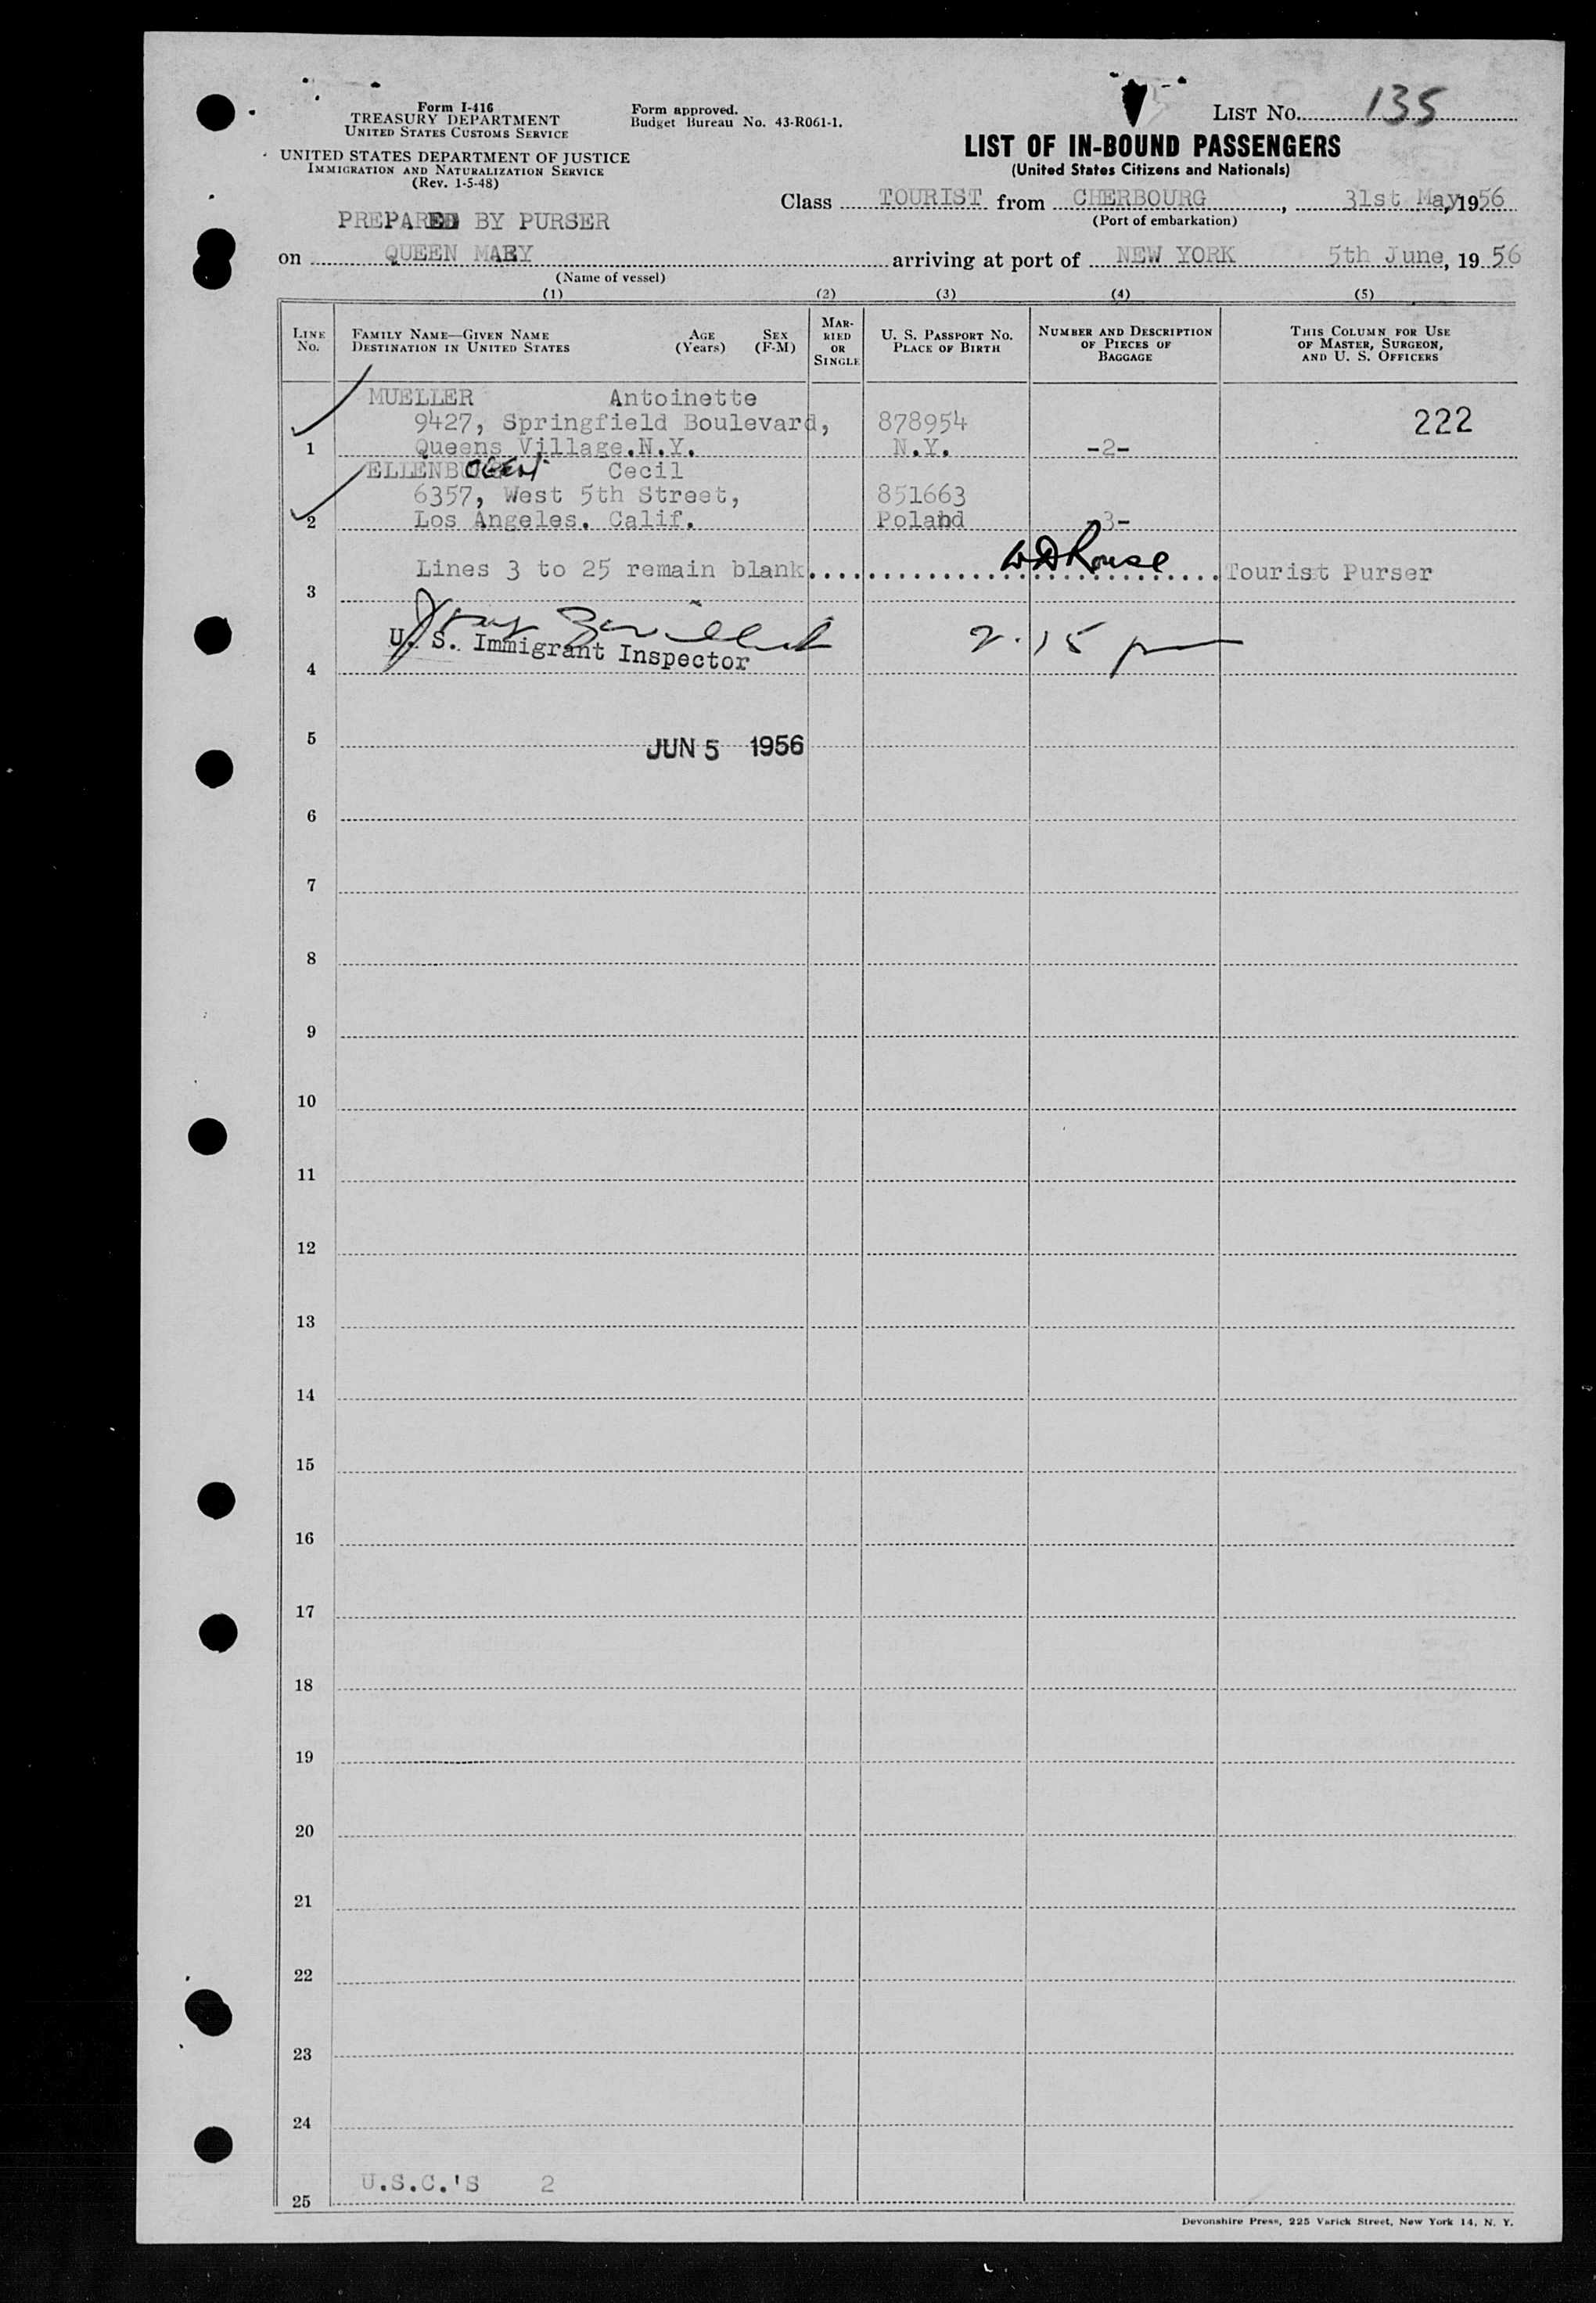 Form I-416
TREASURY DEPARTMENT
UNITED STATES CUSTOMS SERVICE
UNITED STATES DEPARTMENT OF JUSTICE
IMMIGRATION AND NATURALIZATION SERVICE
(Rev. 1-5-48)
Form approved.
Budget Bureau No. 43-R061-1.
LIST NO. 135
LIST OF IN-BOUND PASSENGERS
(United States Citizens and Nationals)
Class TOURIST from CHERBOURG, 31st May, 1956
(Port of embarkation)
PREPARED BY PURSER
on QUEEN MARY arriving at port of NEW YORK 5th June, 1956
(Name of vessel)
(1) (2) (3) (4) (5)
LINE NO.
FAMILY NAME—GIVEN NAME AGE SEX
DESTINATION IN UNITED STATES (Years) (F-M)
MARRIED OR SINGLE
U. S. PASSPORT NO.
PLACE OF BIRTH
NUMBER AND DESCRIPTION
OF PIECES OF
BAGGAGE
THIS COLUMN FOR USE
OF MASTER, SURGEON,
AND U. S. OFFICERS
MUELLER Antoinette
9427, Springfield Boulevard, 878954 222
1 Queens Village.N.Y. N.Y. -2-
ELLENBOGEN Cecil
6357, West 5th Street, 851663
2 Los Angeles. Calif. Poland -3-
Lines 3 to 25 remain blank WD Rouse Tourist Purser
3
2.15 pm
U. S. Immigrant Inspector
4
5 JUN 5 1956
6
7
8
9
10
11
12
13
14
15
16
17
18
19
20
21
22
23
24
U.S.C.'S 2
25
Devonshire Press, 225 Varick Street, New York 14, N. Y.